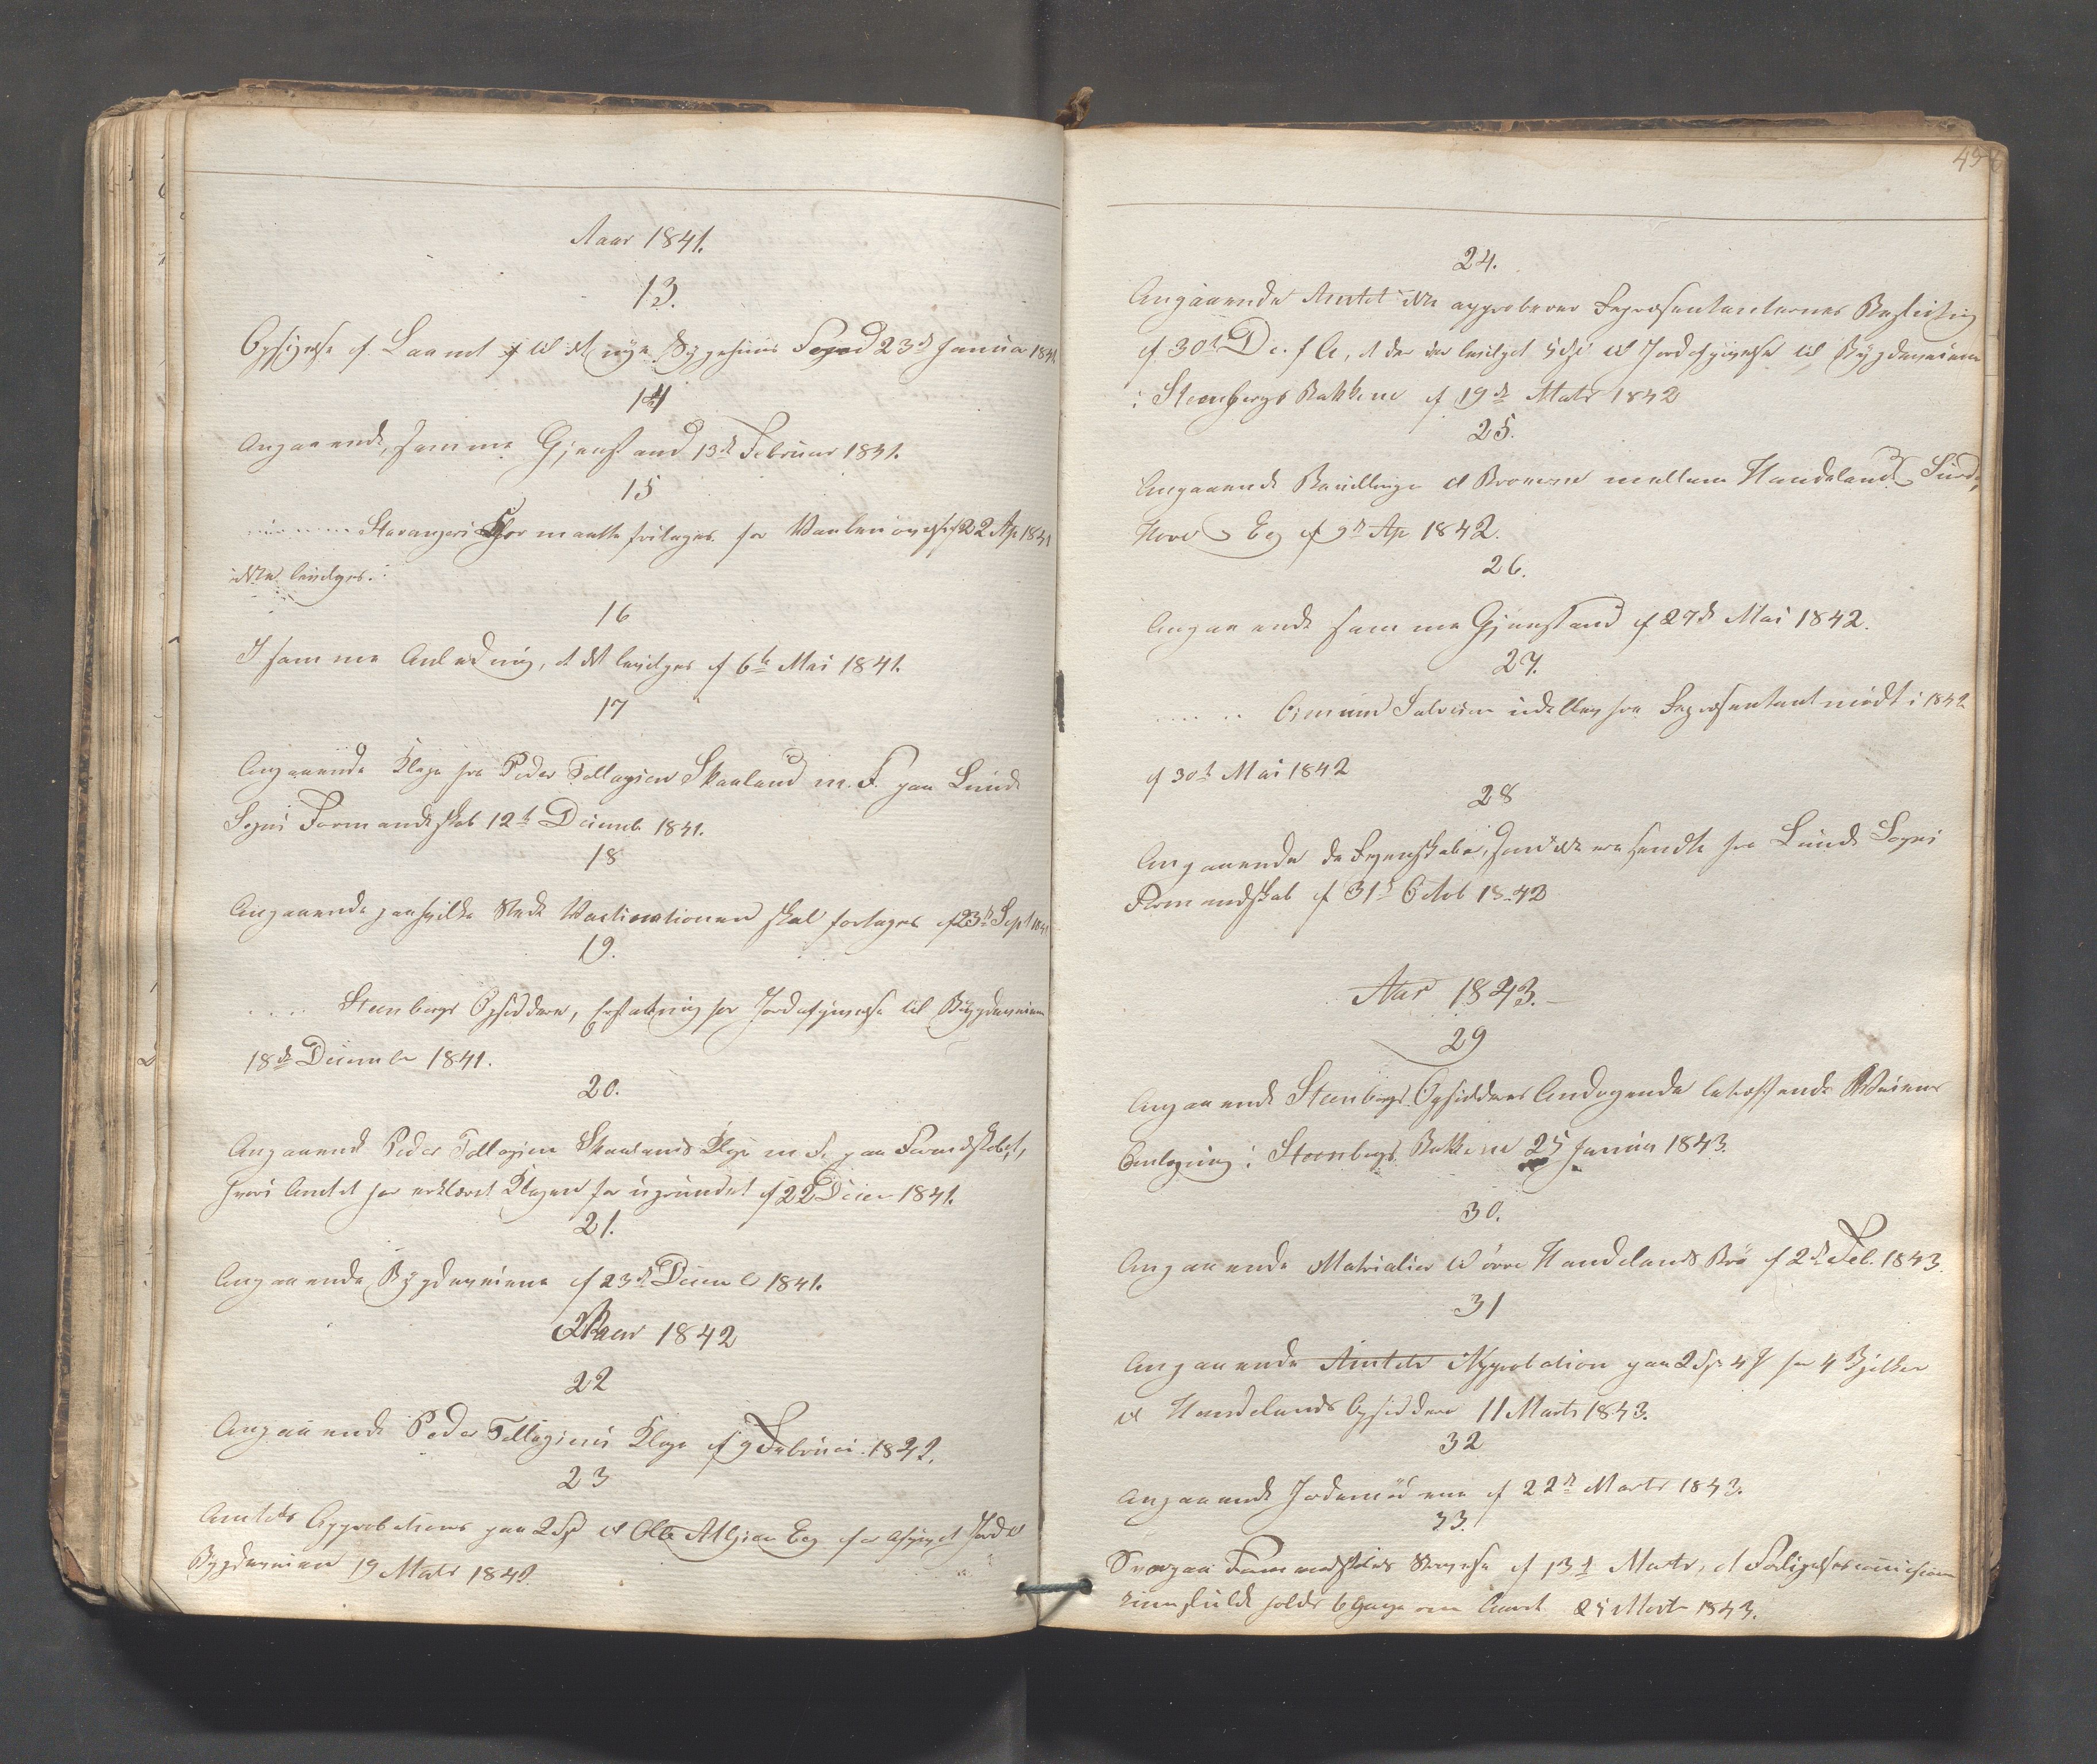 Aar 1841.
13.
Opsigelse af Laanet til det nye Sygehuus 23d Januar 1841
14
Angaaende samme Gjenstand 13d Februar 1841.
15
Stavangers maatte fritages for 22 Ap 1841
ikke bevilges.
16
I samme Anledning, at det bevilges af 6te Mai 1841.
17
Angaaende Klage fra Peder Tollagsen Skaaland m. F. paa Lunde
Sogns Formandskab 12t Decemb 1841.
18
Angaaende paa hvilke Stede Vaccinationen skal foretages af 23d Sept 1841
19.
.... Steenbergs Opsiddere, Erstatning for Jordafgivelse til Bygdeveien
18de Decembr 1841.
20.
Angaaende Peder Tollagsen Skaalands Klage m F. paa Formdskabet,
hvori Amtet har erklæret Klagen for ugrundet af 22 Decer 1841.
21.
Angaaende Bygdeveiene af 23d Decemb 1841.
Aar 1842
22
Angaaende Peder Tollagsens Klage af 9 Februar 1842.
23
Amtets Approbations paa 2 Sp til Ole Eeg for afgivet Jord til
Bygdeveien 19 Marts 1842.
49
24.
Angaaende Amtet ikke approberer Repræsentanternes Beslutning
af 30t De. f A, at der er bevilget til Jordafgivelse til Bygdeveien
i Steenbergs Bakkene af 19de Marts 1842
25.
Angaaende Bevillinge til Broerne mellem Handeland, Surd,
Hove og Eeg af 9d Ap 1842.
26.
Angaaende samme Gjenstand af 27d Mai 1842.
27.
...... Omund udebleven fra Repræsentantmødt i 1842
af 30t Mai 1842
28
Angaaende de Regenskaber, som ikke ere sendte fra Lunde Sogns
Formandskab af 31t Octob 1842
Aar 1843.
29
Angaaende Steenbergs Opsidderes Andragende betræffende Veiens
Omlægning i Steenbergs Bakkene 25 Januar 1843.
30.
Angaaende Matrialier til øvre Handelands Bro af 2d Feb. 1843.
31
Angaaende Amtets Approbation paa 2 Sp 4 for 4 Bjelker
til Handelands Opsiddere 11 Marts 1843.
32
Angaaende Jordemødrene af 22d Marts 1843.
33.
Svar paa Formandskabets Skrivelse af 13d Marts, at Forligelsescomission
skulde holdes 6 Gange om Aaret 24 Marts 1843.